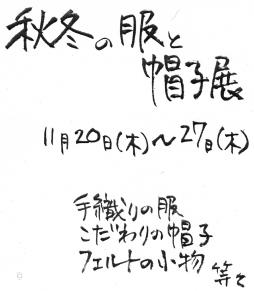 秋冬の服と
帽子展
11月20日(木)〜27日(木)
手織りの服
こだわりの帽子
フェルトの小物 等々